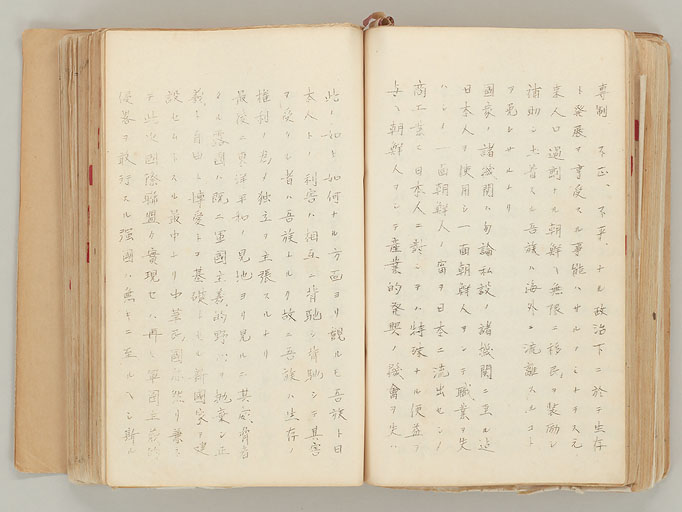 専制、不正、不平、ナル政治下ニ於テ生存
ト発展ヲ享受スル事能ハサルノミナラス元
来人口過剰ナル朝鮮ニ無限ニ移民ヲ奨励シ
補助シ土着スル吾族ハ海外ニ流離スルコト
ヲ免レサルナリ
国家ノ諸機関ハ勿論私設ノ諸機関ニ至ル迄
日本人ヲ使用シ一面朝鮮人ヲシテ職業ヲ失
ハシメ一面朝鮮人ノ富ヲ日本ニ流出セシメ
商工業ニ日本人ニ対シテハ特殊ナル便益ヲ
与ヘ朝鮮人ヲシテ産業的発興ノ機会ヲ失ハ
此ノ如ク如何ナル方面ヨリ観ルモ吾族ト日
本人トノ利害ハ相互ニ背馳シ背馳シテ其害
ヲ受クル者ハ吾族ナルカ故ニ吾族ハ生存ノ
権利ノ為メ独立ヲ主張スルナリ
最後ニ東洋平和ノ見地ヨリ見ルニ其脅威者
ナル露国ハ既ニ軍国主義的野心ヲ抛棄シ正
義ト自由ト博愛トヲ基礎トセル新国家ヲ建
設セムトスル最中ナリ中華民国亦然リ兼
テ此次国際聯盟カ実現セハ再ヒ軍国主義的
侵略ヲ敢行スル強国ハ無キニ至ルヘシ斯ル